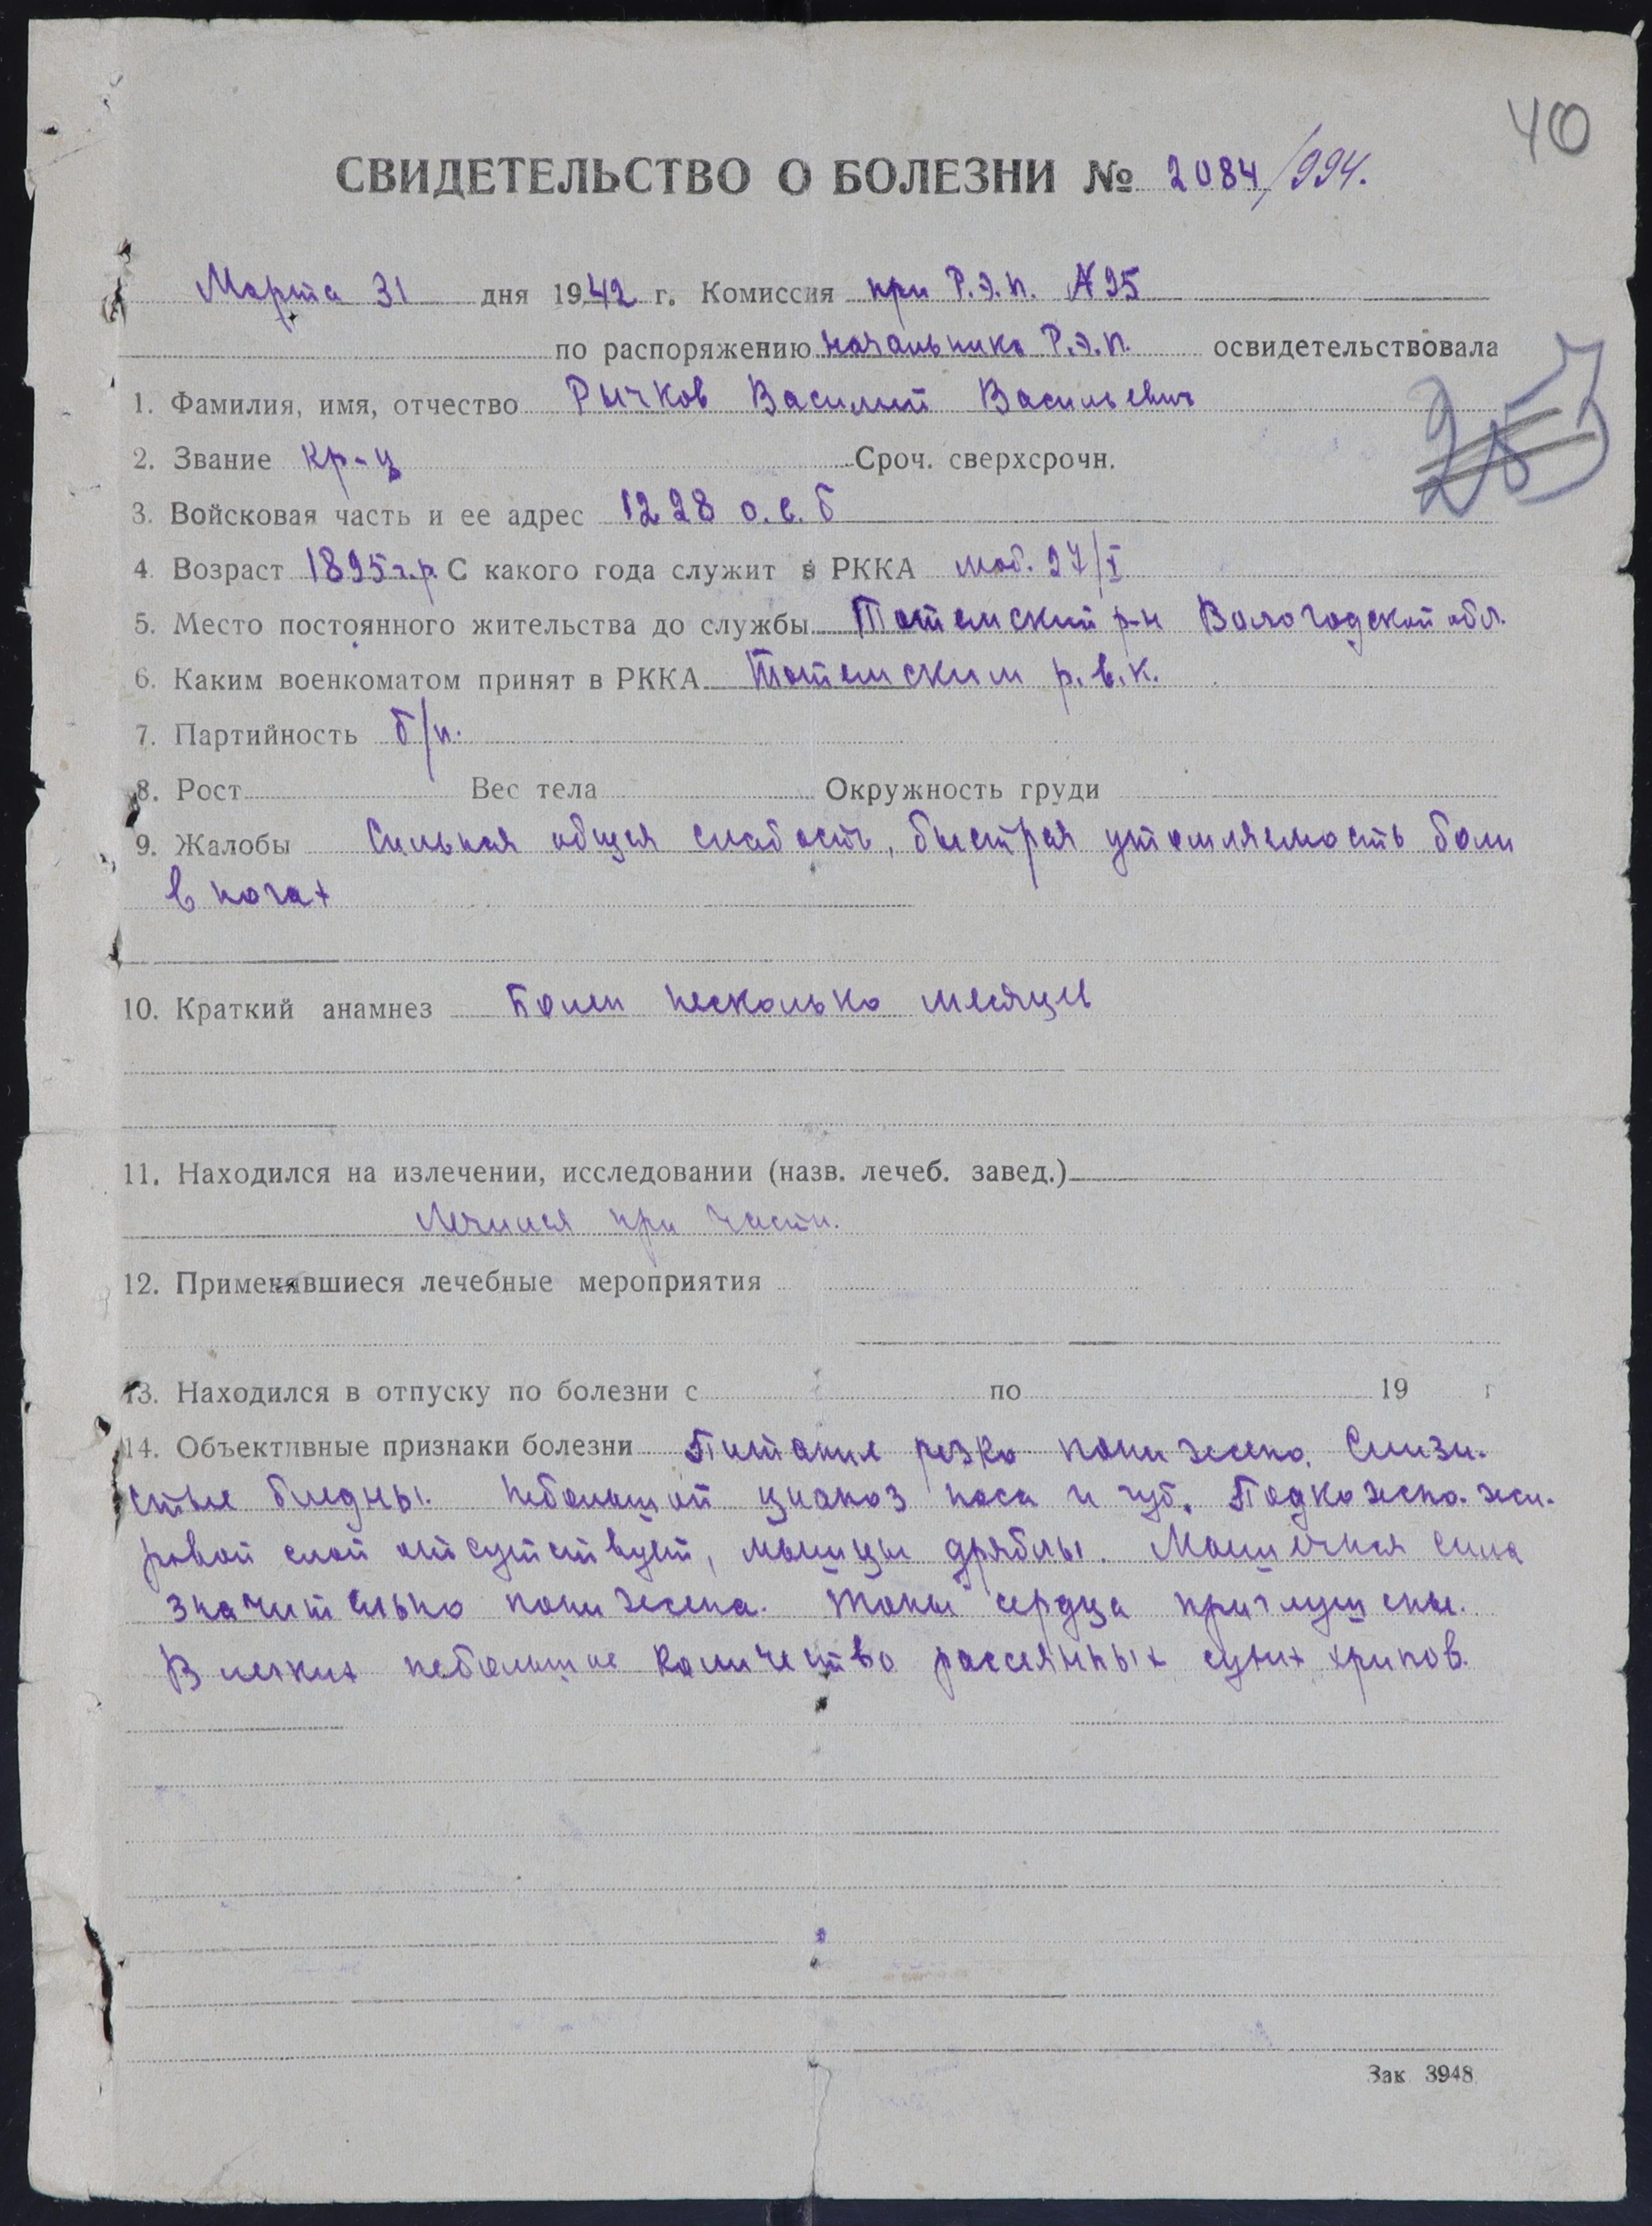 40
СВИДЕТЕЛЬСТВО О БОЛЕЗНИ № 2084/994.
Марта 31 дня 1942 г. Комиссия при Р.Э.П. № 95
по распоряжению начальника Р.Э.П. освидетельствовала
1. Фамилия, имя, отчество Рычков Василий Васильевич
2. Звание кр-ц Сроч. сверхсрочн.
253
3. Войсковая часть и ее адрес 1228 о.с.б
4. Возраст 1895 г.р. С какого года служит в РККА моб. 27/I
5. Место постоянного жительства до службы Тотемский р-н Вологодской обл.
6. Каким военкоматом принят в РККА Тотемским р.в.к.
7. Партийность б/п.
8. Рост Вес тела Окружность груди
9. Жалобы Сильная общая слабость, быстрая утомляемость боли
в ногах
10. Краткий анамнез Болен несколько месяцев
11. Находился на излечении, исследовании (назв. лечеб. завед.)
Лечился при части.
12. Применявшиеся лечебные мероприятия
13. Находился в отпуску по болезни с по 19 г
14. Объективные признаки болезни Питание резко понижено. Слизи-
стые бледны. Небольшой цианоз носа и губ. Подкожно-жи-
ровой слой отсутствует, мышцы дряблы. Мышечная сила
значительно понижена. Тоны сердца приглушены.
В легких небольшое количество рассеянных сухих хрипов.
Зак 3948